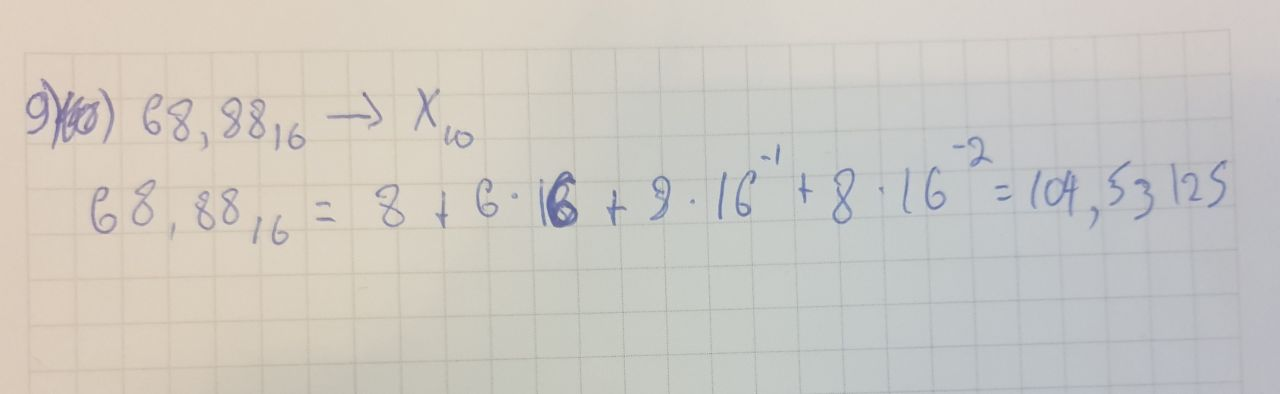 9) 68,88₁₆ → X₁₀
68,88₁₆ = 8 + 6·16 + 8·16⁻¹ + 8·16⁻² = 104,53125